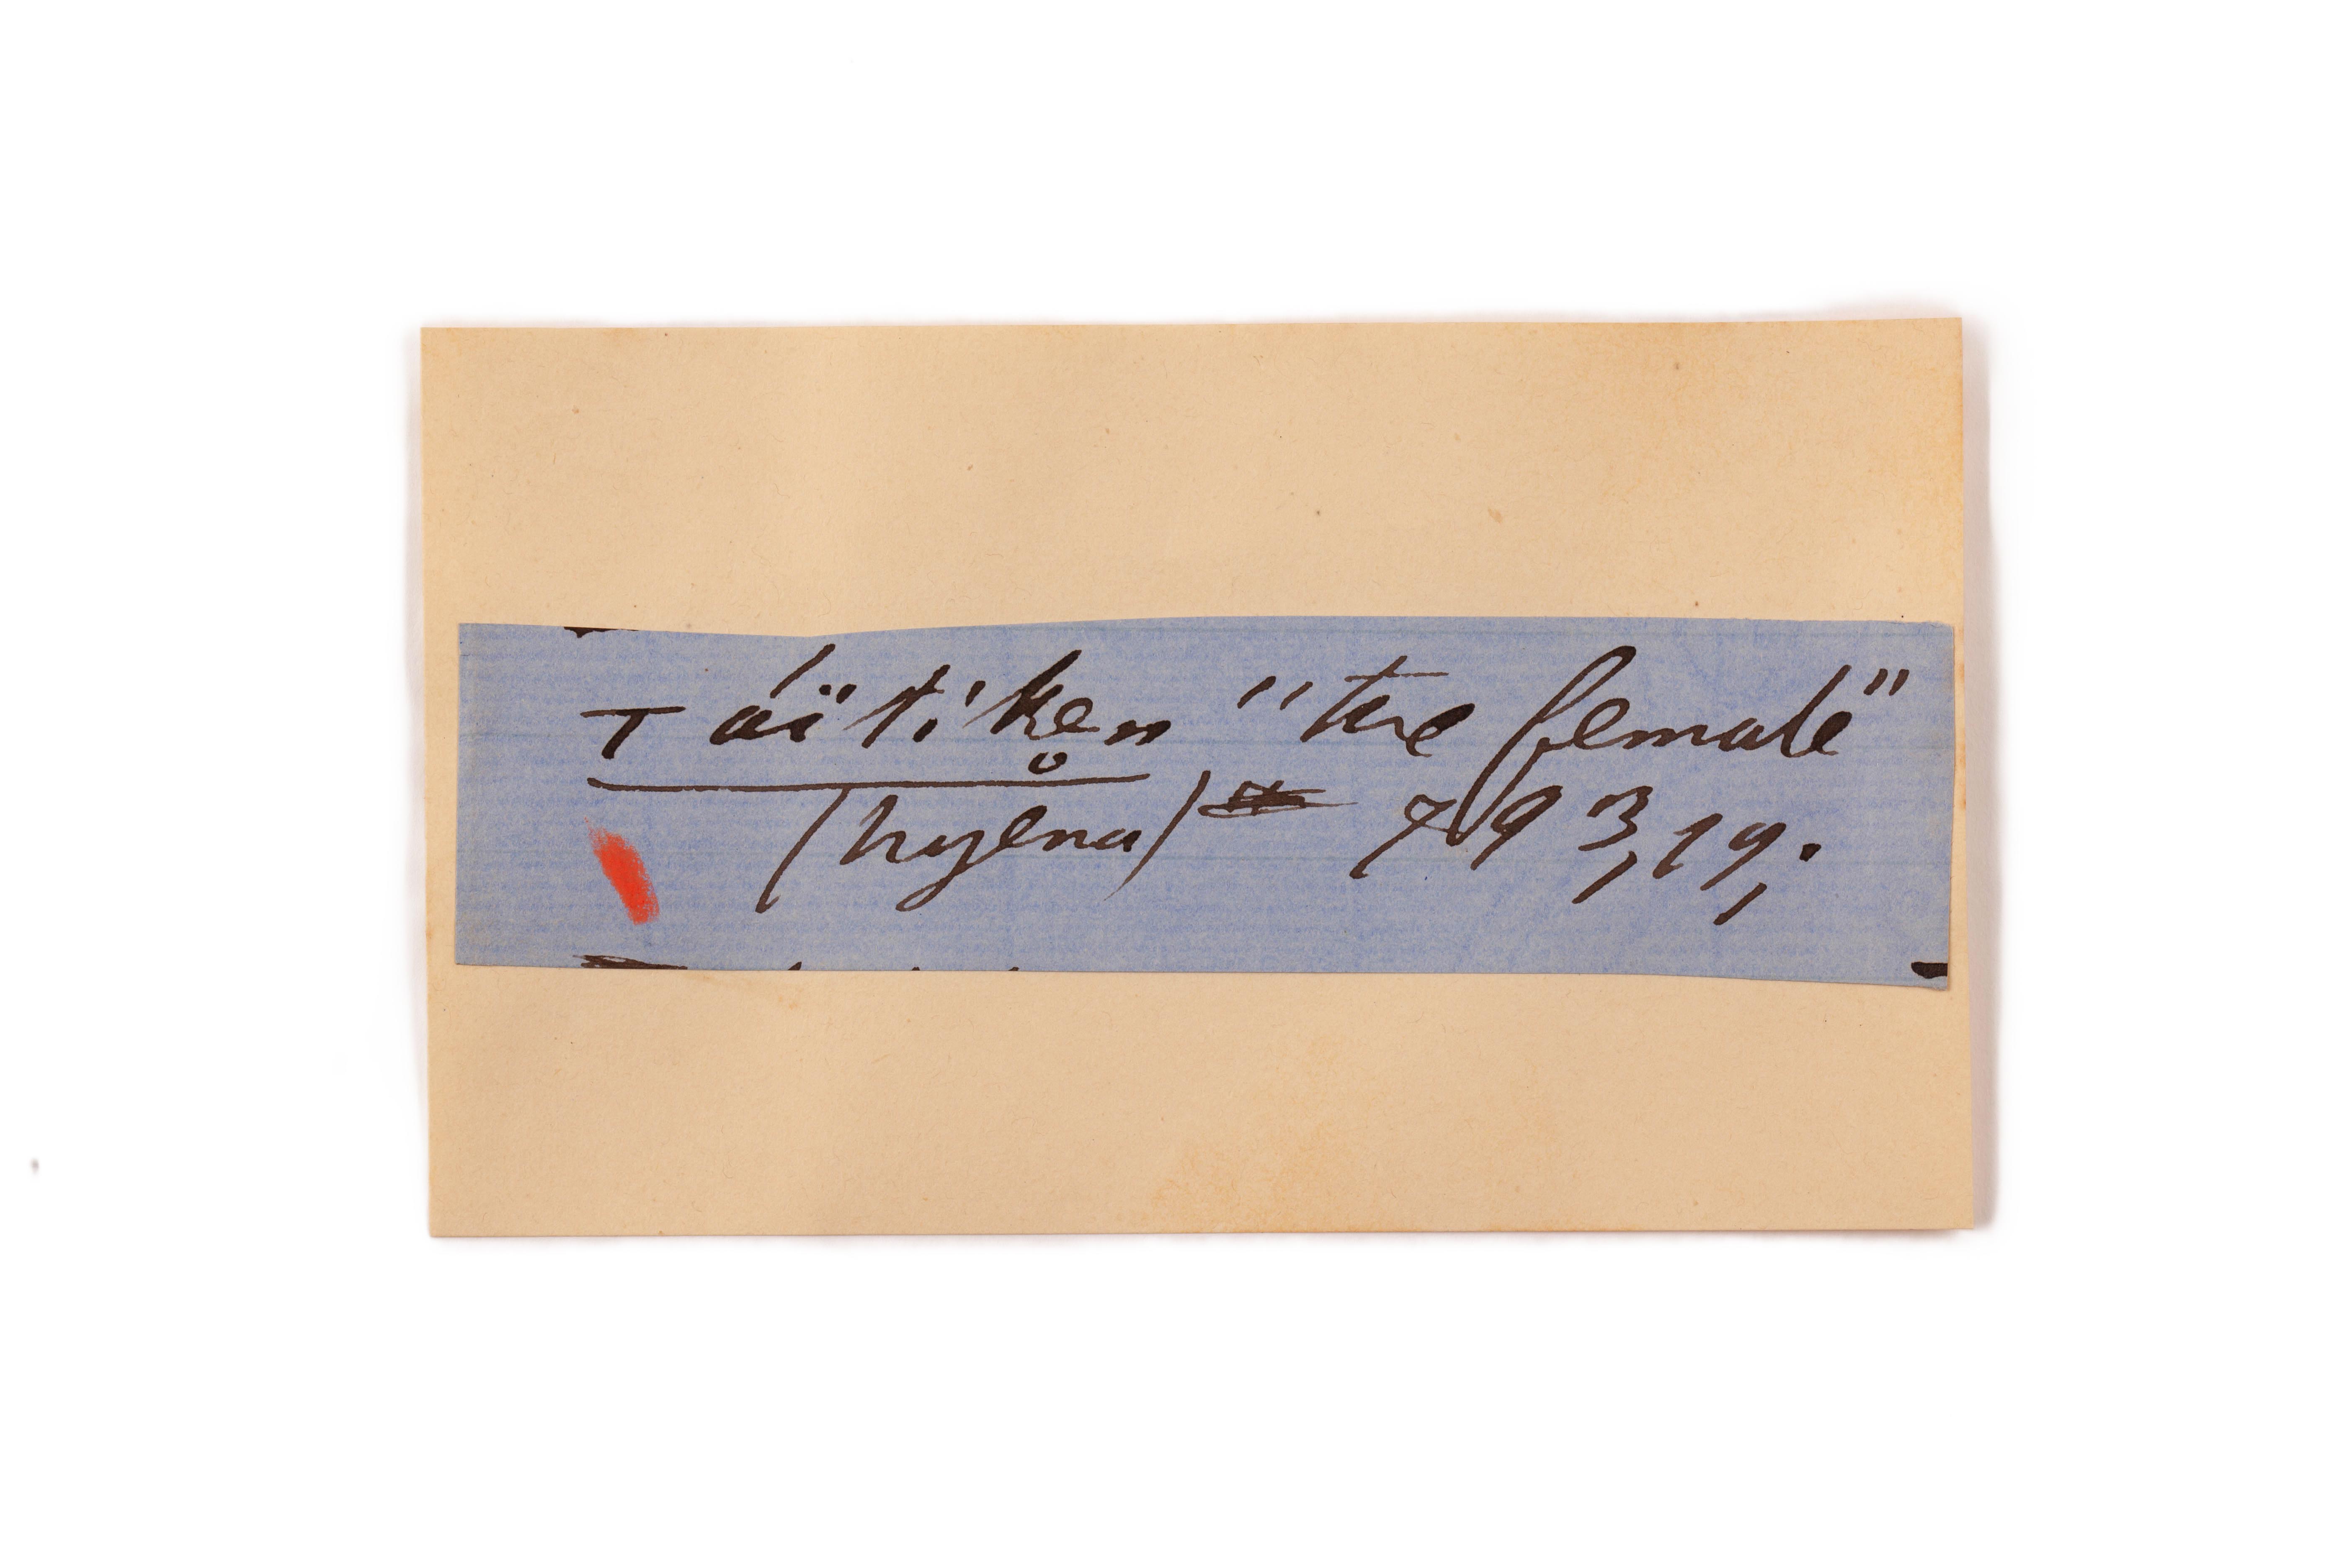 T áïti'ke̥n "the female"
(hyena) 793,19,.